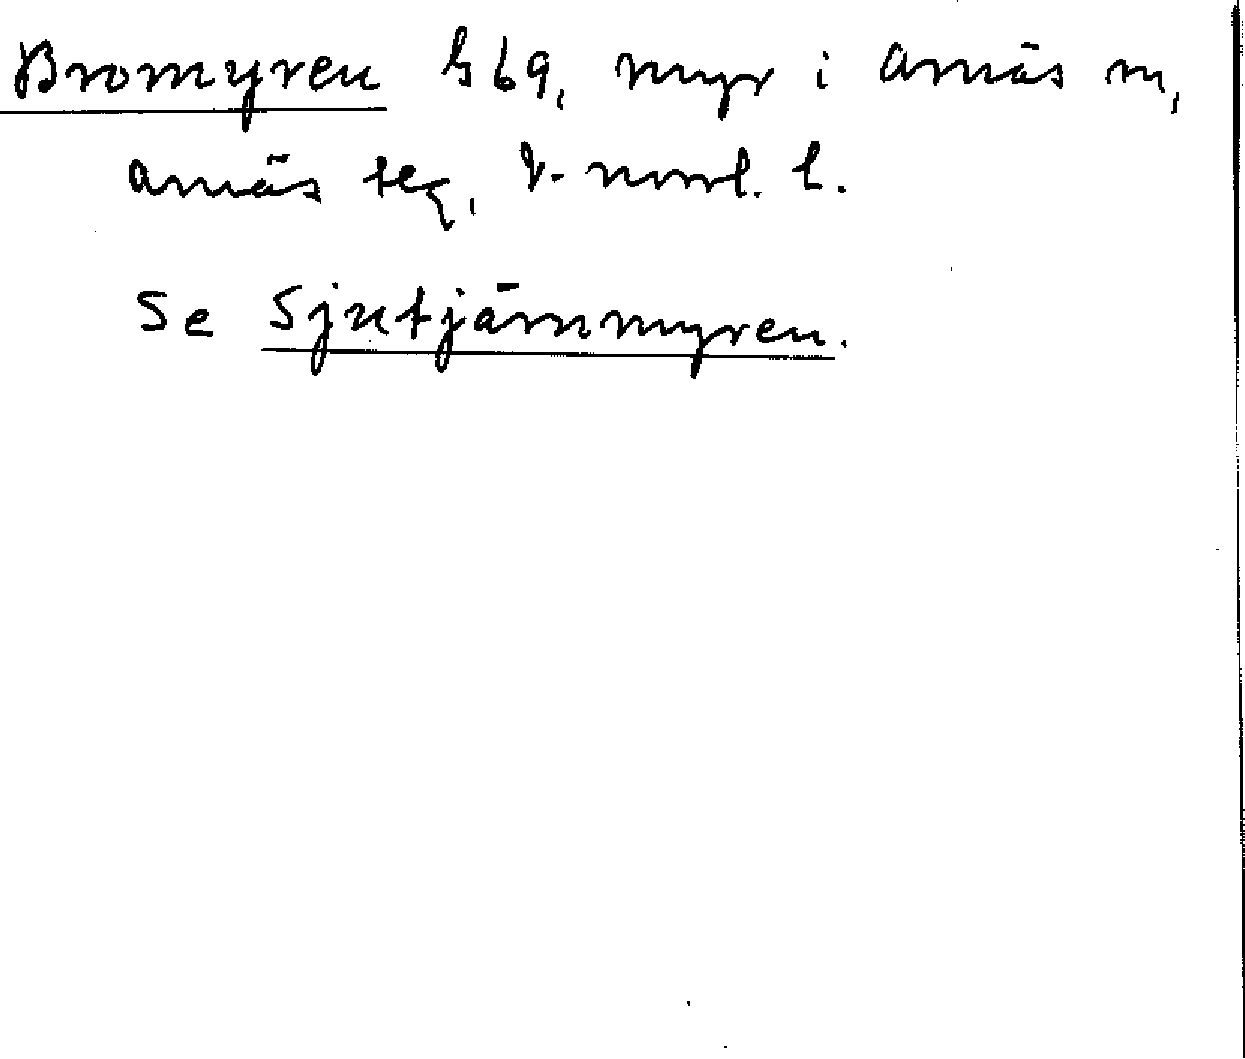 Bromyren G69, myr i Arnäs m,
Arnäs
V. norrl. l.
Se Sjutjärnmyren.